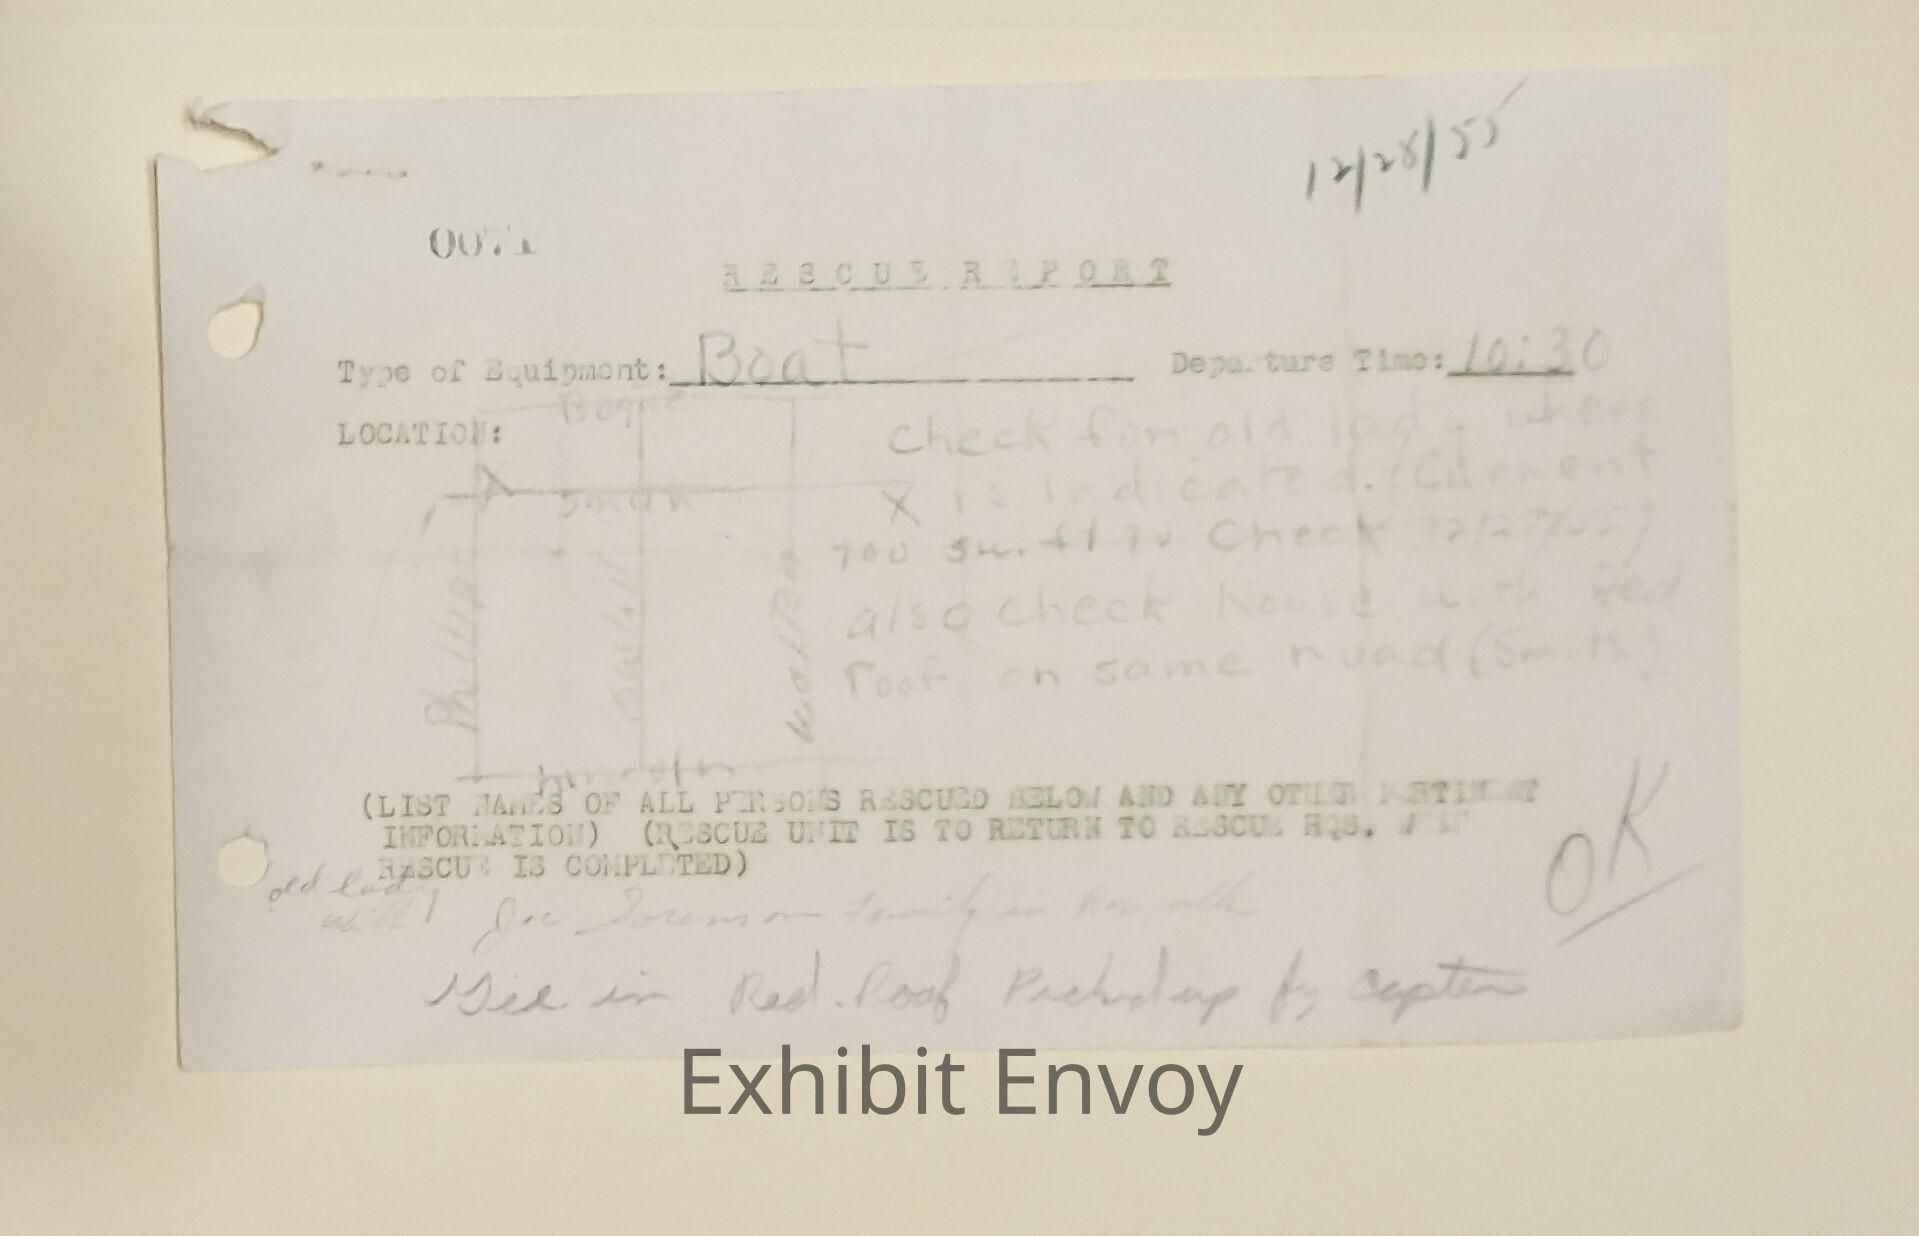 12/28/55
0071
RESCUE REPORT
Type of Equipment: Boat Departure Time: 10:30
LOCATION:
Bogue
Smith
Phillips
Walton
check for old lady where
X is indicated. (Current
too swift to Check 12/27/55)
also check house with Red
roof on same road (Smith)
Lincoln
(LIST NAMES OF ALL PERSONS RESCUED BELOW AND ANY OTHER PERTINENT
INFORMATION) (RESCUE UNIT IS TO RETURN TO RESCUE HQS.
RESCUE IS COMPLETED)
OK
old lady
with Joe Sorenson family in
in Red Roof Picked up by
Exhibit Envoy